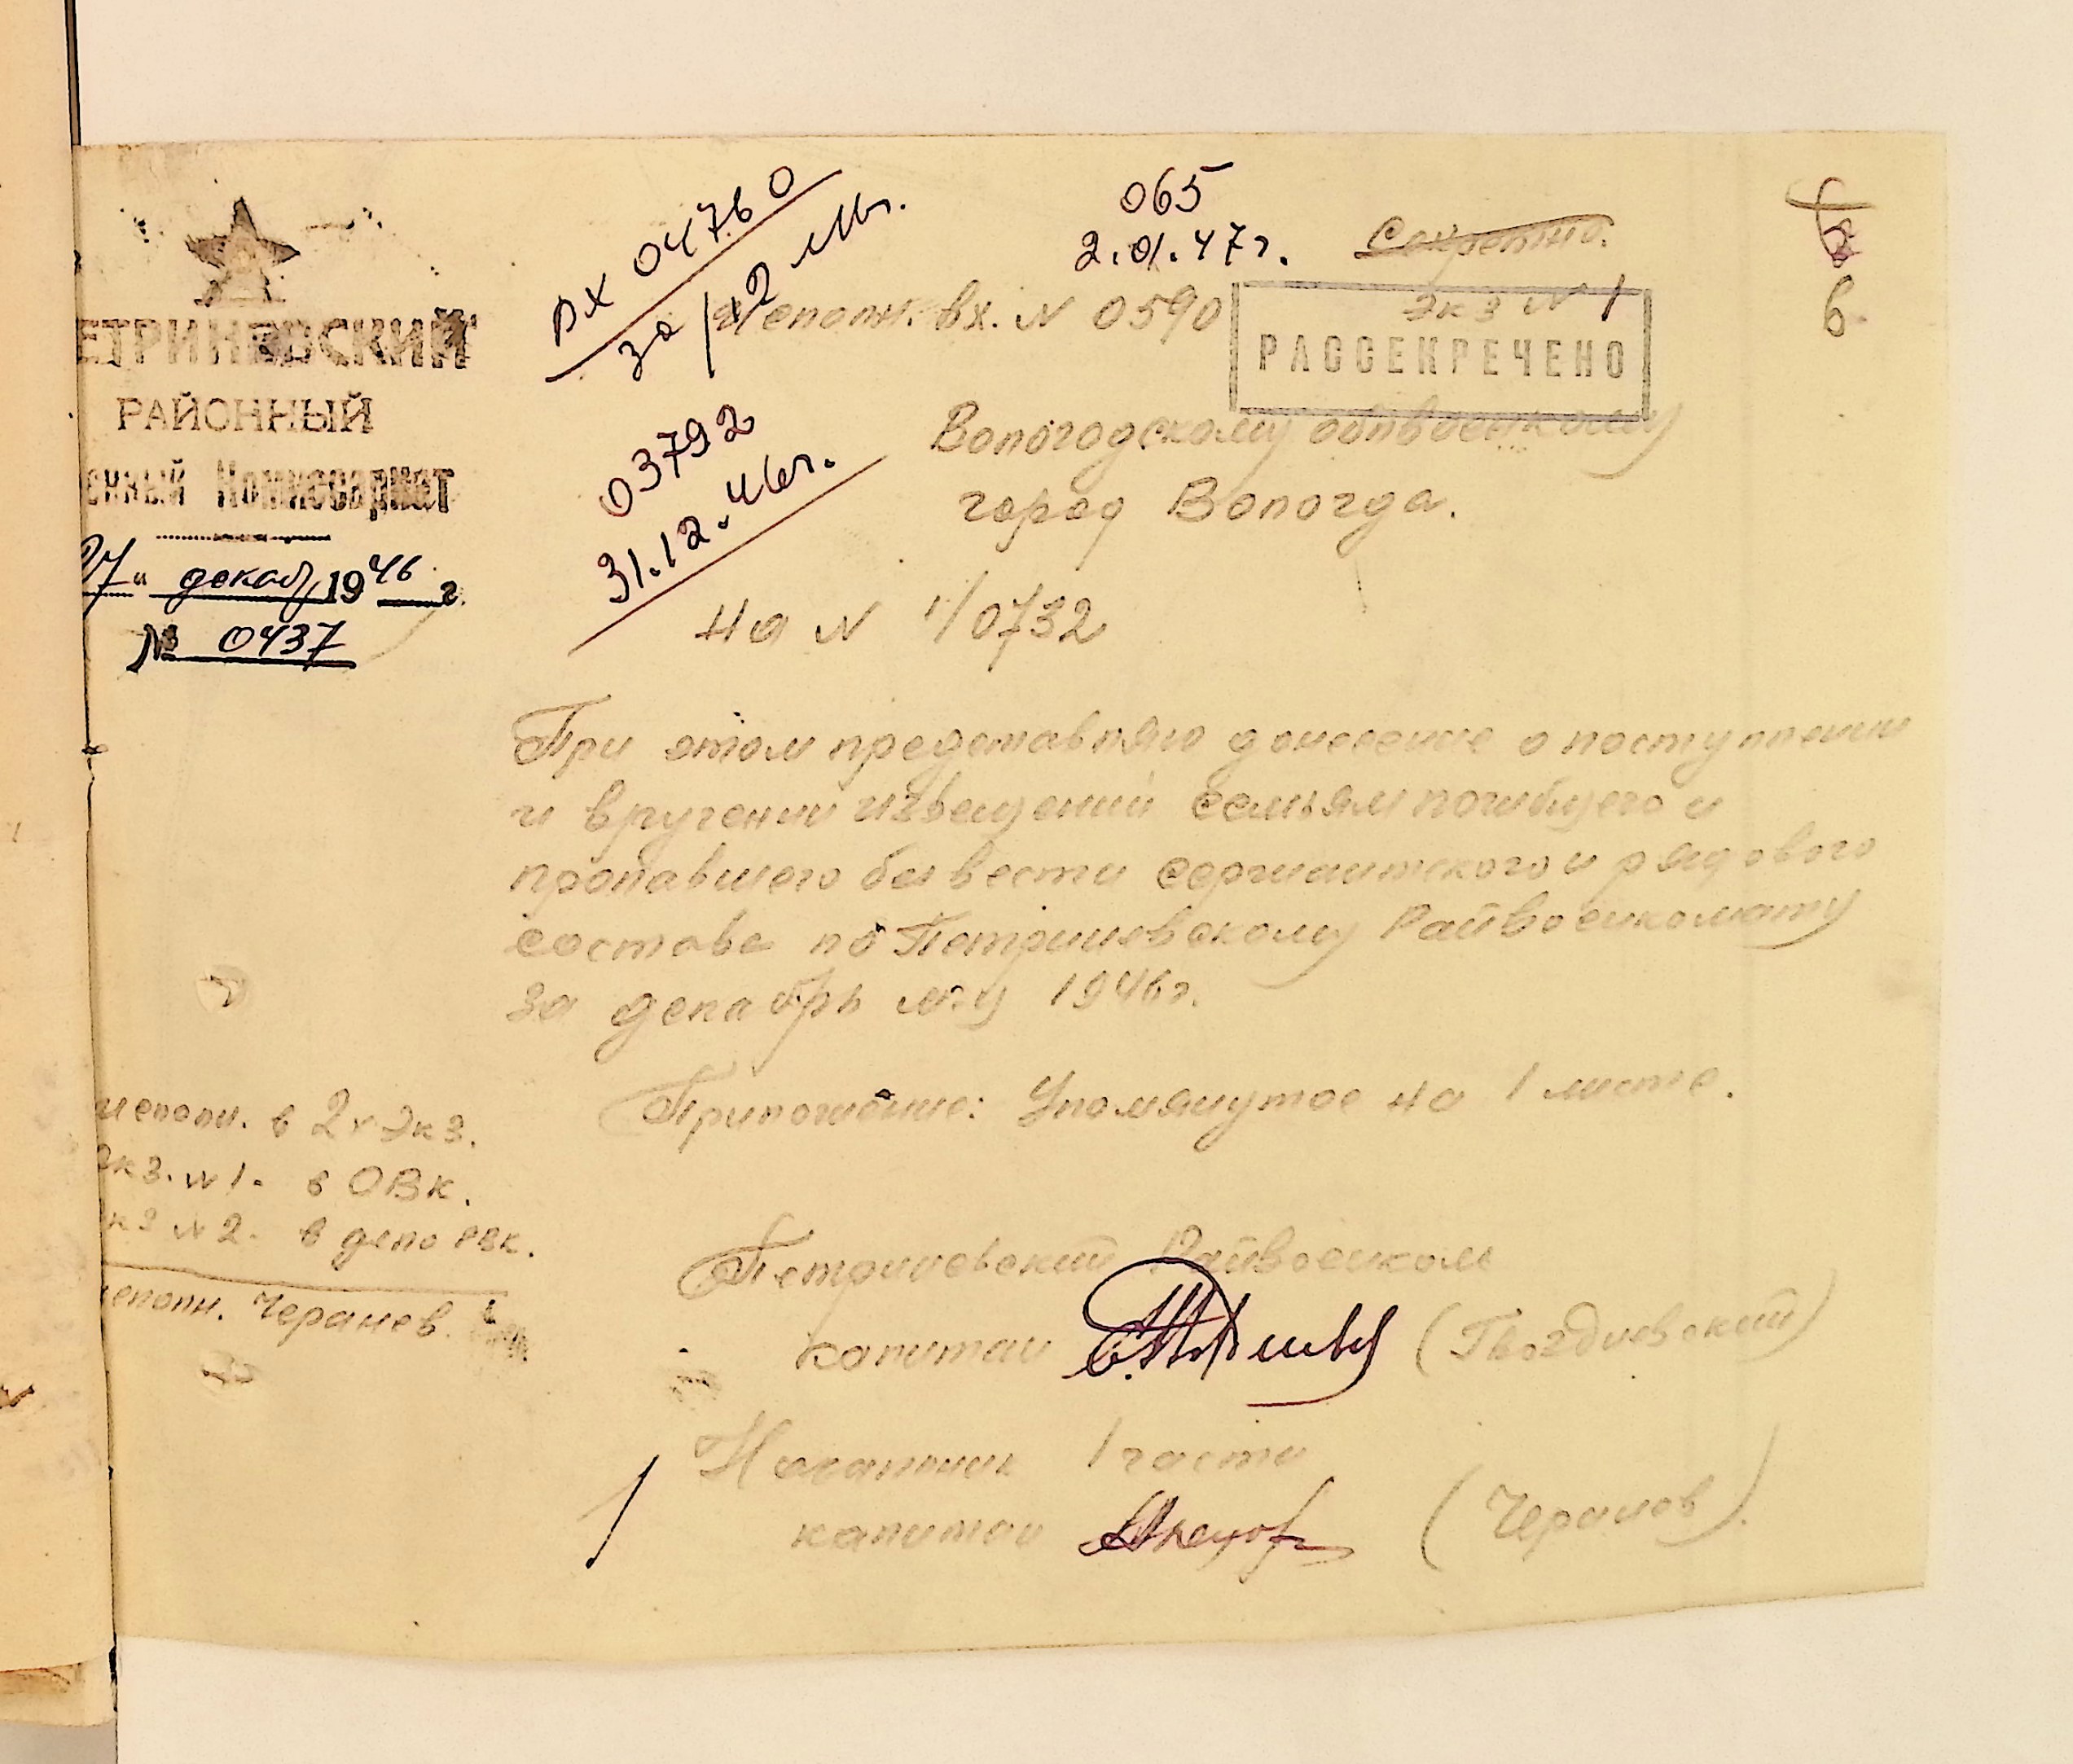 ЕТРИНЕВСКИЙ
РАЙОННЫЙ
енный Комиссариат
27" декаб, 1946 г.
№ 0437
вх 04760
за /12 мц.
03792
31.12.46г.
065
2.01.47г.
Секретно.
6
Исполн. вх. N 0590
экз N 1
РАССЕКРЕЧЕНО
Вологодскому облвоенкому
город Вологда.
На N 1/0732
При этом представляю донесение о поступлении
и вручении извещений семьям погибшего и
пропавшего без вести сержантского и рядового
состава по Петриневскому Райвоенкомату
за декабрь м-ц 1946г.
Приложение: Упомянутое на 1 листе.
исполн. в 2х экз.
экз. N 1. в ОВК.
кз N 2. в дело РВК.
исполн. Черанев.
Петриневский Райвоенком
капитан (Гвоздиевский)
Начальник 1 части
капитан (Черанев).